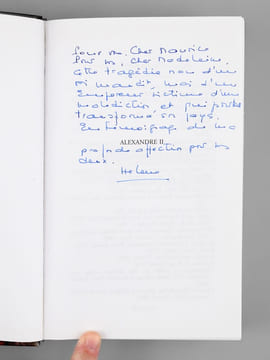 Pour vous, Cher Maurice
Pour vs, Cher Madeleine,
cette tragédie non d'un
roi maudit, mais d'un
Empereur victime d'une
malédiction et qui pourtant
transforma son pays.
En témoignage de ma
ALEXANDRE II
profonde affection pour vs
deux.
Hélène